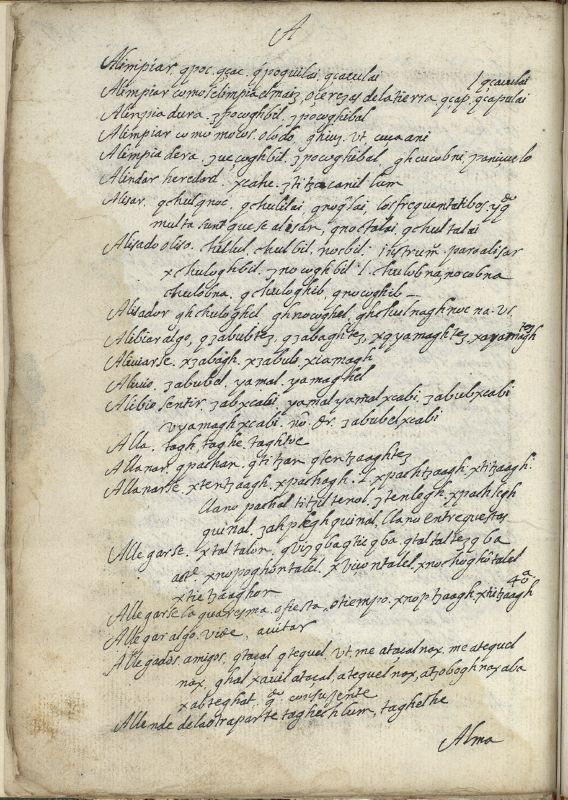 A
Alimpiar. qpoc. qçac. qpoquilai, qcaculai
Alimpiar como se limpia el maiz, o cerezas de la tierra qcap, qcapulai / qcaculai
Alinpiadura. ʒpocoghbil. ʒpocoghibal
Alimpiar como mocos. o lodo, qhiuȝ. vt, cuca ani
Alimpiadera, ʒucoghbil. ʒpocoghibal, qhucubni, panicuelo
Alindar heredad, xcahe. ʒtitzacanil lum
Alisar. qchulqnoc, qchulilai, qnoqlai, los frequentatibos. yq̄
multa sunt que se alisan, qnoctalai, qchultalai
Alisado o liso. chulul chulbil, nocbil. instrum̄. para alisar
xchuloghbil. ʒnocoghbil. l. chulobna, nocobna
chulobna. qchuloghib, qnocoghib
Alisador ghchuloghel. ghnocoghel, ghchulnaghnoc na. vr.
Alibiar algo, qʒabubteȝ, qʒabaghteȝ, xqyamaghteȝ, xayamagh teȝ
Aliuiarse. xʒabagh, xʒabub, xiamagh
Aliuio, ʒabubel, yamal, yamaghel
Alibio sentir. ʒabxcabi, yamalyamalxcabi, ʒabubxcabi
vyamaghxcabi. no. dr. ʒabubelxcabi
Alla. tagh, taghe, taghtoe
Allanar. qpachan. qtitzan qtentzaaghteȝ
Allanarse. xtentzaagh. xpachagh. l. xpachtzaagh. xtitzaagh.
llano pachal titzil tenol, ʒtenlegh. xpachlegh
quinal, ʒahplegh quinal, llano entre questas
Allegarse. xtaltalon, quiȝqbaqtiqba. qtaltalteȝqba
act. xnopoghontalel. xuiontalel. xnochoghotalel
xtietzaaghon
Allegarse la quaresma, o fiesta, o tiempo. xnoptzaagh. xtitzaagh 4a
Allegar algo. vide, aiuntar
Allegados. amigos, qtacal, qtequel, vt me atacalnox, me atequel
nox, qhal xauil atacal, atequelnox, atzoboghnoxaba
xabteghat. q̄. consuȷente
Allende de la otra parte taghech lum, taghelhe
Alma